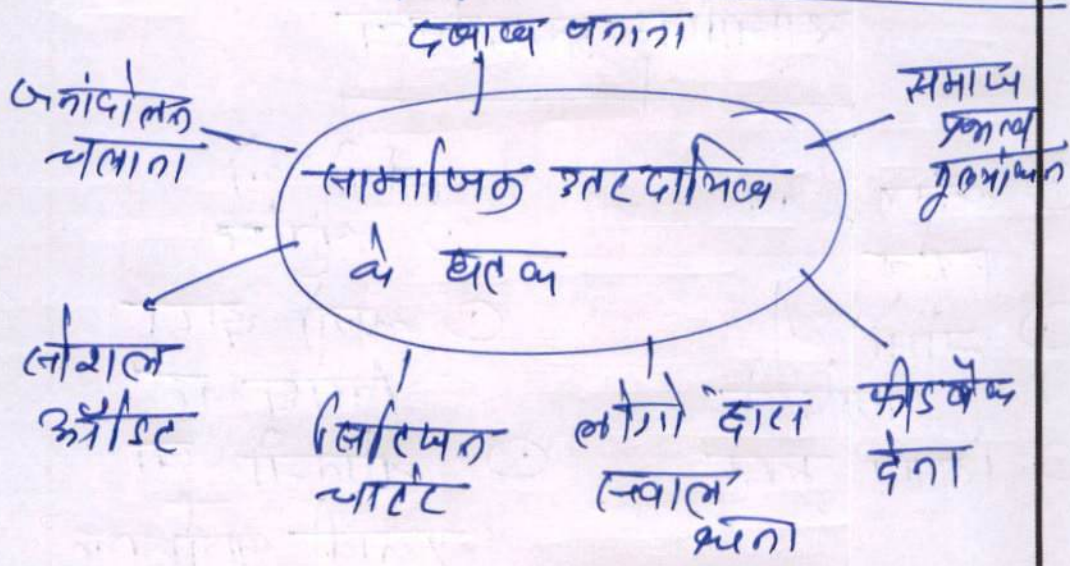 दबाव बनाना
जनांदोलन
चलाना
समाज
प्रभाव
मूल्यांकन
सामाजिक उत्तरदायित्व
के घटक
सोशल
ऑडिट
सिटिजन
चार्टर
लोगो द्वारा
सवाल
फीडबैक
देना